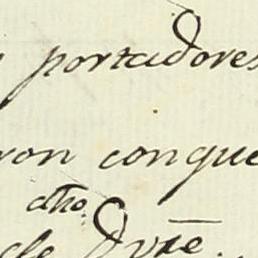 portadores
ron conque
dho.
de Dvte.